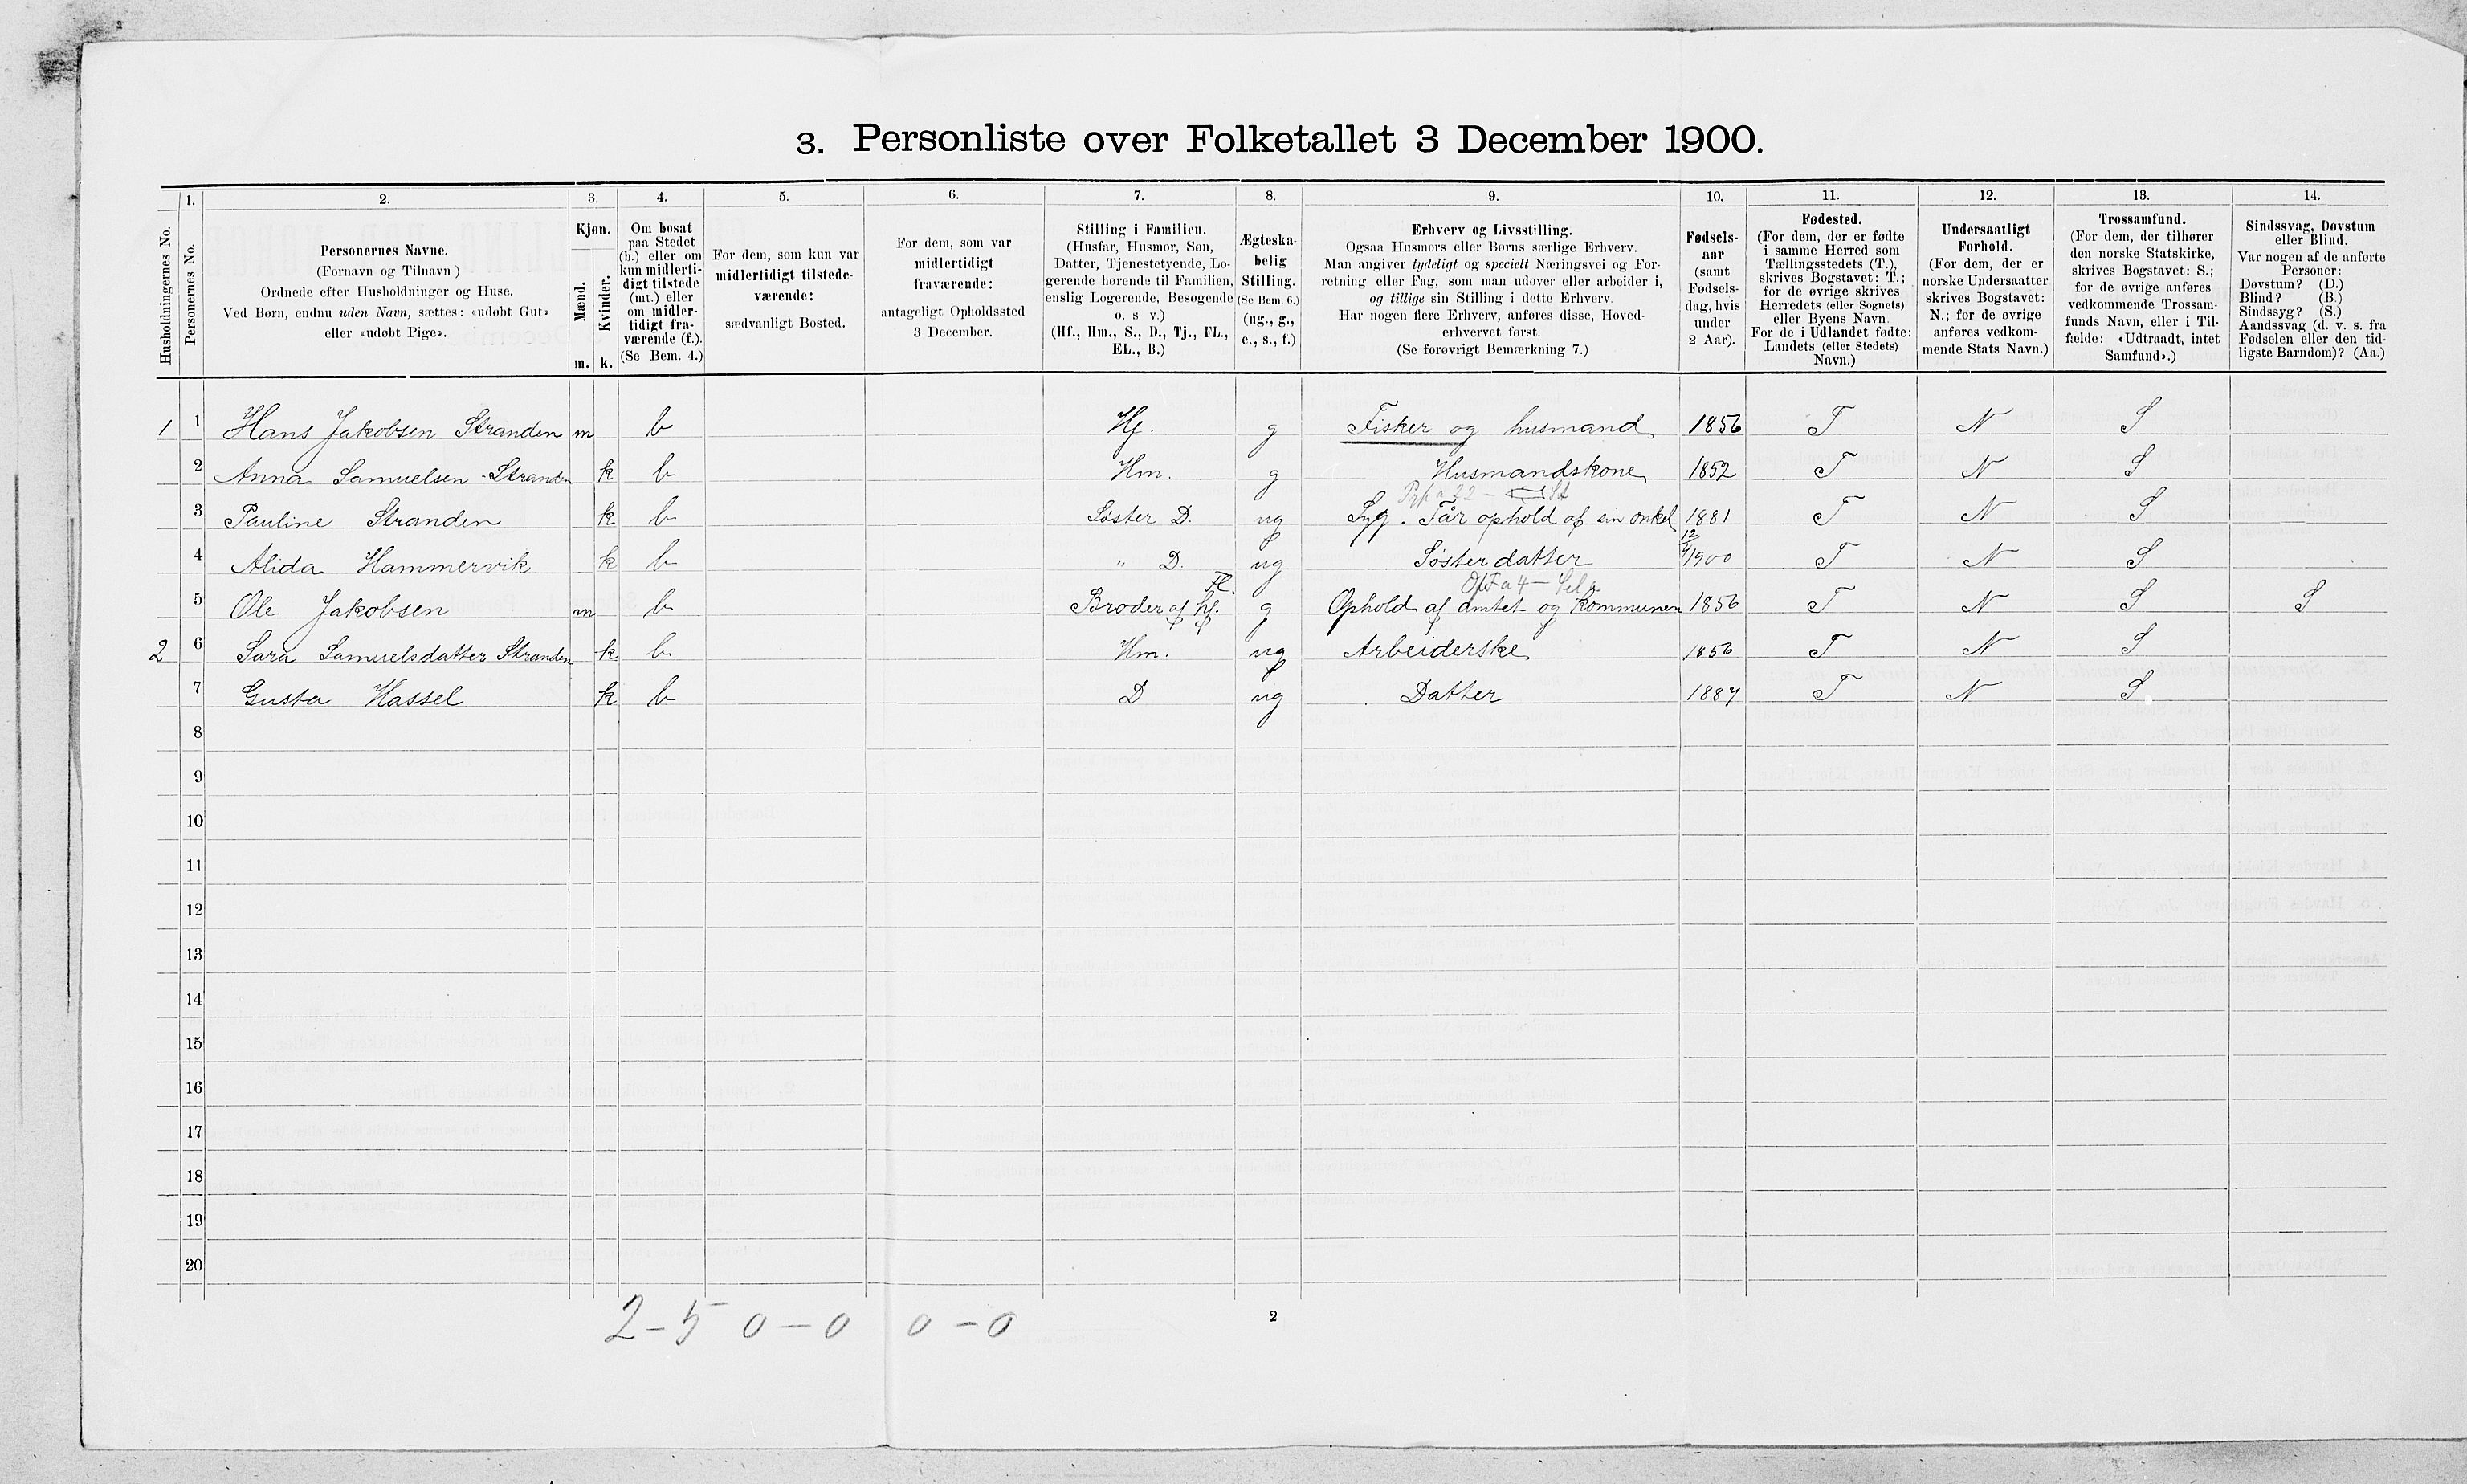 3. Personliste over Folketallet 3 December 1900.
Husholdningernes No.
1. Personernes No.
2. Personernes Navne.
(Fornavn og Tilnavn)
Ordnede efter Husholdninger og Huse.
Ved Børn, endnu uden Navn, sættes: «udøbt Gut»
eller «udøbt Pige».
3. Kjøn.
Mænd. m.
Kvinder. k.
4. Om bosat
paa Stedet
(b.) eller om
kun midlerti-
digt tilstede
(mt.) eller
om midler-
tidigt fra-
værende (f.).
(Se Bem. 4.)
5. For dem, som kun var
midlertidigt tilstede-
værende:
sædvanligt Bosted.
6. For dem, som var
midlertidigt
fraværende:
antageligt Opholdssted
3 December.
7. Stilling i Familien.
(Husfar, Husmor, Søn,
Datter, Tjenestetyende, Lo-
gerende hørende til Familien,
enslig Logerende, Besøgende
o. s v.)
(Hf., Hm., S., D., Tj., FL.,
EL., B.)
8. Ægteska-
belig
Stilling.
(Se Bem. 6.)
(ug., g.,
e., s., f.)
9. Erhverv og Livsstilling.
Ogsaa Husmors eller Børns særlige Erhverv.
Man angiver tydeligt og specielt Næringsvei og For-
retning eller Fag, som man udøver eller arbeider i,
og tillige sin Stilling i dette Erhverv.
Har nogen flere Erhverv, anføres disse, Hoved-
erhvervet først.
(Se forøvrigt Bemærkning 7.)
10. Fødsels-
aar
(samt
Fødsels-
dag, hvis
under
2 Aar).
11. Fødested.
(For dem, der er fødte
i samme Herred som
Tællingsstedets (T.),
skrives Bogstavet: T.;
for de øvrige skrives
Herredets (eller Sognets)
eller Byens Navn.
For de i Udlandet fødte:
Landets (eller Stedets)
Navn.)
12. Undersaatligt
Forhold.
(For dem, der er
norske Undersaatter
skrives Bogstavet:
N.; for de øvrige
anføres vedkom-
mende Stats Navn.)
13. Trossamfund.
(For dem, der tilhører
den norske Statskirke,
skrives Bogstavet: S.;
for de øvrige anføres
vedkommende Trossam-
funds Navn, eller i Til-
fælde: «Udtraadt, intet
Samfund».)
14. Sindssvag, Døvstum
eller Blind.
Var nogen af de anførte
Personer:
Døvstum? (D.)
Blind? (B.)
Sindssyg? (S.)
Aandssvag (d. v. s. fra
Fødselen eller den tid-
ligste Barndom)? (Aa.)
1 1 Hans Jakobsen Stranden m b Hf. g Fisker og husmand 1856 T N S
2 Anna Samuelsen Stranden k b Hm. g Husmandskone 1852 T N S
3 Pauline Stranden k b Søster D. ug Syg. Får ophold af sin onkel 1881 T N S
4 Alida Hammervik k b " D. ug Søsterdatter 12/4 1900 T N S
Fl.
5 Ole Jakobsen m b Broder af hf. g Ophold af amtet og kommunen 1856 T N S S
2 6 Sara Samuelsdatter Stranden k b Hm. ug Arbeiderske 1856 T N S
7 Gusta Hassel k b D ug Datter 1887 T N S
8
9
10
11
12
13
14
15
16
17
18
19
20
2-5 0-0 0-0
2